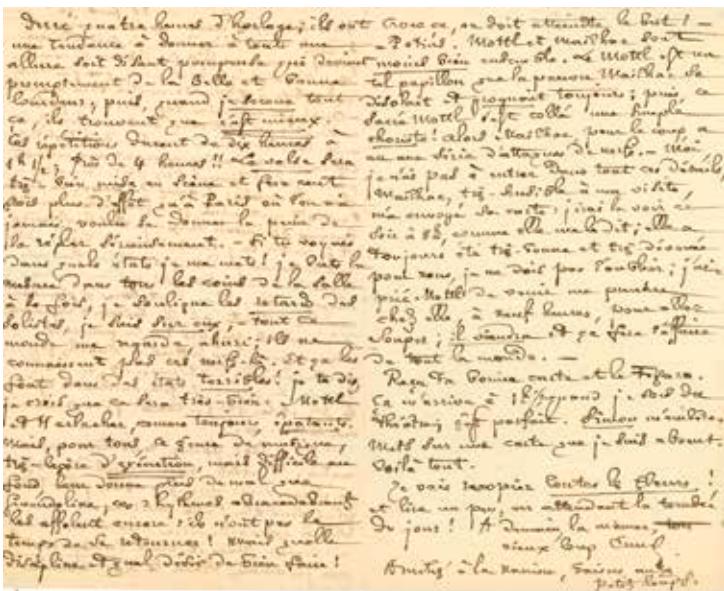 Duré quatre heures d'horloge; ils ont
une tendance à donner à tout une
allure soit disant, pompeuse qui devient
promptement de la Belle et Bonne
lourdeur; puis, quand je secoue tout
ça, ils trouvent que c'est mieux.
Les répétitions durent de dix heures à
1h 1/2; Près de 4 heures!! La valse sera
très bien mise en scène et fera cent
fois plus d'effet qu'à Paris où l'on n'a
jamais voulu se donner la peine de
la régler sérieusement. - Si tu voyais
dans quels états je me mets! je bats la
mesure dans tous les coins de la salle
à la fois, je souligne les retards des
solistes, je suis sur eux, - tout ce
monde me regarde ahuri; ils ne
connaissent pas ces et ça les
font dans des états terribles! je te dis,
je crois que ça sera très-bien. Mottl
et Harlacher, comme toujours, épatants.
Mais, pour tous, ce genre de musique,
très-légère d'exécution, mais difficile au
fond, leur donne plus de mal que
Gwendoline, ces rythmes abracadabrants
les affolent encore; ils n'ont pas le
temps de se retourner! mais quelle
discipline et quel désir de bien faire!
Crois ça, on doit atteindre le but! -
- Potins. Mottl et Mailhac sont
moins bien ensemble. Le Mottl est un
tel papillon que la pauvre Mailhac se
désolait et grognait toujours; puis ce
sacré Mottl s'est collé une simple
choriste! alors Mailhac, pour le coup, a
eu une série d'attaques de nerfs. - Moi
je n'ai pas à entrer dans tout ces détails,
Mailhac, très-sensible à ma visite,
m'a envoyé sa carte; j'irai la voir ce
soir à 8h, comme elle me le dit; elle a
toujours été très-bonne et très dévouée
pour nous, je ne dois pas l'oublier; j'ai
prié Mottl de venir me prendre
chez elle, à neuf heures, pour aller
souper; il viendra et ça fera l'affaire
de tout le monde. -
Reçu ta bonne carte et le Figaro.
Ça m'arrive à 1h 1/2 quand je sors du
théâtre; c'est parfait. Simon
Mets sur une carte que je suis absent.
Voilà tout.
Je vais recopier toutes les fleurs!
et lire un peu, en attendant la tombée
du jour! A demain, la même,
vieux loup
Amitiés à la Nanine,